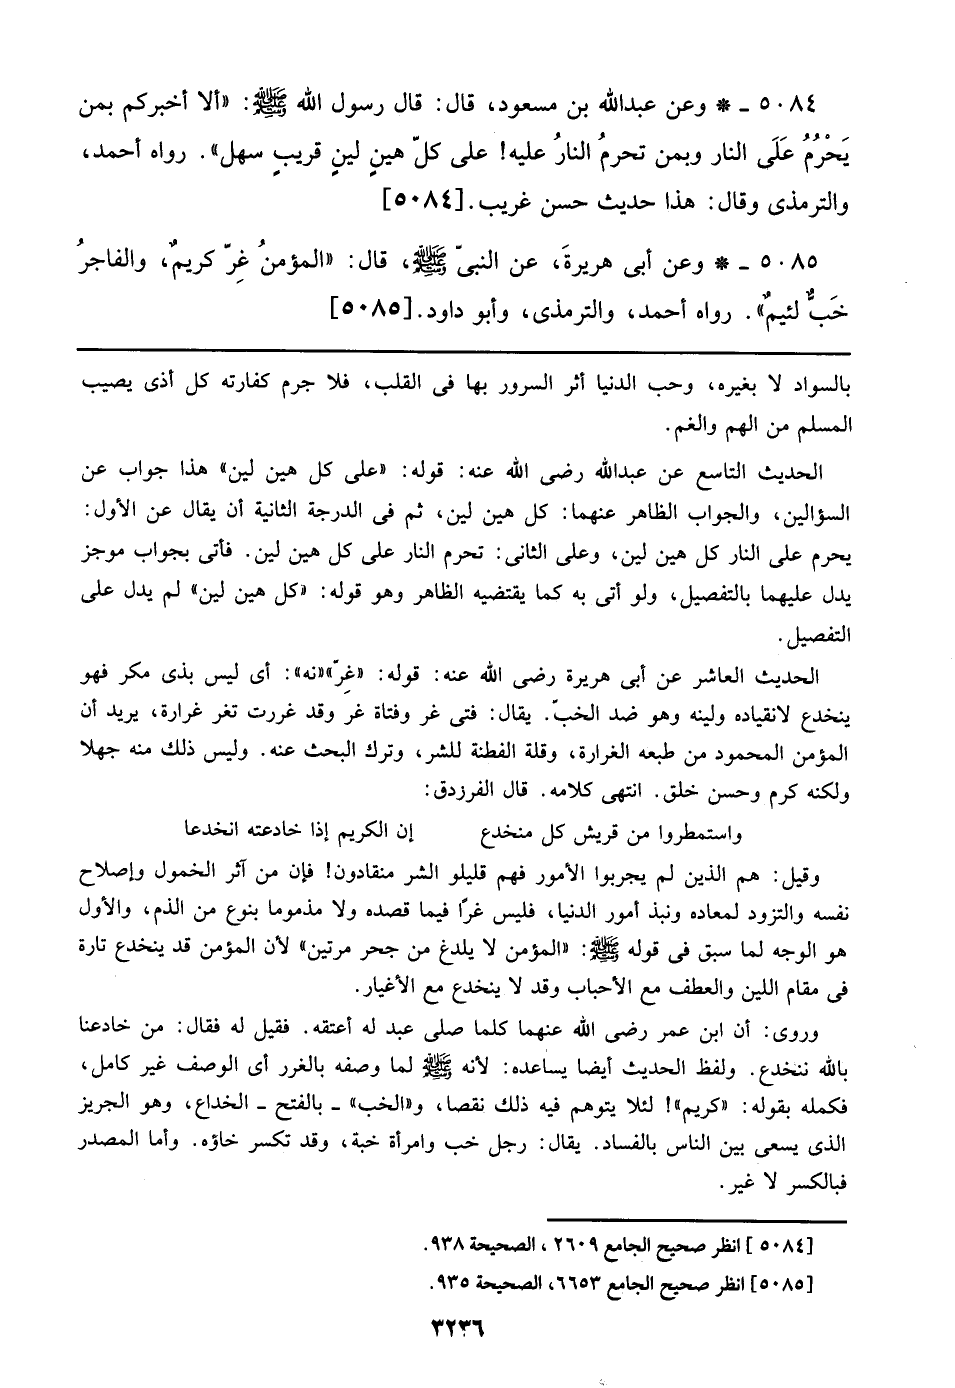 ٥٠٨٤ ـ * وعن عبدالله بن مسعود، قال: قال رسول الله ﷺ: «ألا أخبركم بمن
يَحْرُمُ عَلَى النار وبمن تحرمُ النارُ عليه! على كلّ هينٍ لينٍ قريبٍ سهل». رواه أحمد،
والترمذى وقال: هذا حديث حسن غريب.[٥٠٨٤]
٥٠٨٥ ـ * وعن أبى هريرةَ، عن النبىّ ﷺ، قال: «المؤمنُ غِرّ كريمٌ، والفاجرُ
خَبٌّ لئيمٌ». رواه أحمد، والترمذى، وأبو داود.[٥٠٨٥]
بالسواد لا بغيره، وحب الدنيا أثر السرور بها فى القلب، فلا جرم كفارته كل أذى يصيب
المسلم من الهم والغم.
الحديث التاسع عن عبدالله رضى الله عنه: قوله: «على كل هين لين» هذا جواب عن
السؤالين، والجواب الظاهر عنهما: كل هين لين، ثم فى الدرجة الثانية أن يقال عن الأول:
يحرم على النار كل هين لين، وعلى الثانى: تحرم النار على كل هين لين. فأتى بجواب موجز
يدل عليهما بالتفصيل، ولو أتى به كما يقتضيه الظاهر وهو قوله: «كل هين لين» لم يدل على
التفصيل.
الحديث العاشر عن أبى هريرة رضى الله عنه: قوله: «غِرّ»«نه»: أى ليس بذى مكر فهو
ينخدع لانقياده ولينه وهو ضد الخبّ. يقال: فتى غر وفتاة غر وقد غررت تغر غرارة، يريد أن
المؤمن المحمود من طبعه الغرارة، وقلة الفطنة للشر، وترك البحث عنه. وليس ذلك منه جهلا
ولكنه كرم وحسن خلق. انتهى كلامه. قال الفرزدق:
واستمطروا من قريش كل منخدع إن الكريم إذا خادعته انخدعا
وقيل: هم الذين لم يجربوا الأمور فهم قليلو الشر منقادون! فإن من آثر الخمول وإصلاح
نفسه والتزود لمعاده ونبذ أمور الدنيا، فليس غرًا فيما قصده ولا مذموما بنوع من الذم، والأول
هو الوجه لما سبق فى قوله ﷺ: «المؤمن لا يلدغ من جحر مرتين» لأن المؤمن قد ينخدع تارة
فى مقام اللين والعطف مع الأحباب وقد لا ينخدع مع الأغيار.
وروى: أن ابن عمر رضى الله عنهما كلما صلى عبد له أعتقه. فقيل له فقال: من خادعنا
بالله ننخدع. ولفظ الحديث أيضا يساعده: لأنه ﷺ لما وصفه بالغرر أى الوصف غير كامل،
فكمله بقوله: «كريم»! لئلا يتوهم فيه ذلك نقصا، و«الخب» ـ بالفتح ـ الخداع، وهو الجريز
الذى يسعى بين الناس بالفساد. يقال: رجل خب وامرأة خبة، وقد تكسر خاؤه. وأما المصدر
فبالكسر لا غير.
[٥٠٨٤] انظر صحيح الجامع ٢٦٠٩، الصحيحة ٩٣٨.
[٥٠٨٥] انظر صحيح الجامع ٦٦٥٣، الصحيحة ٩٣٥.
٣٢٣٦